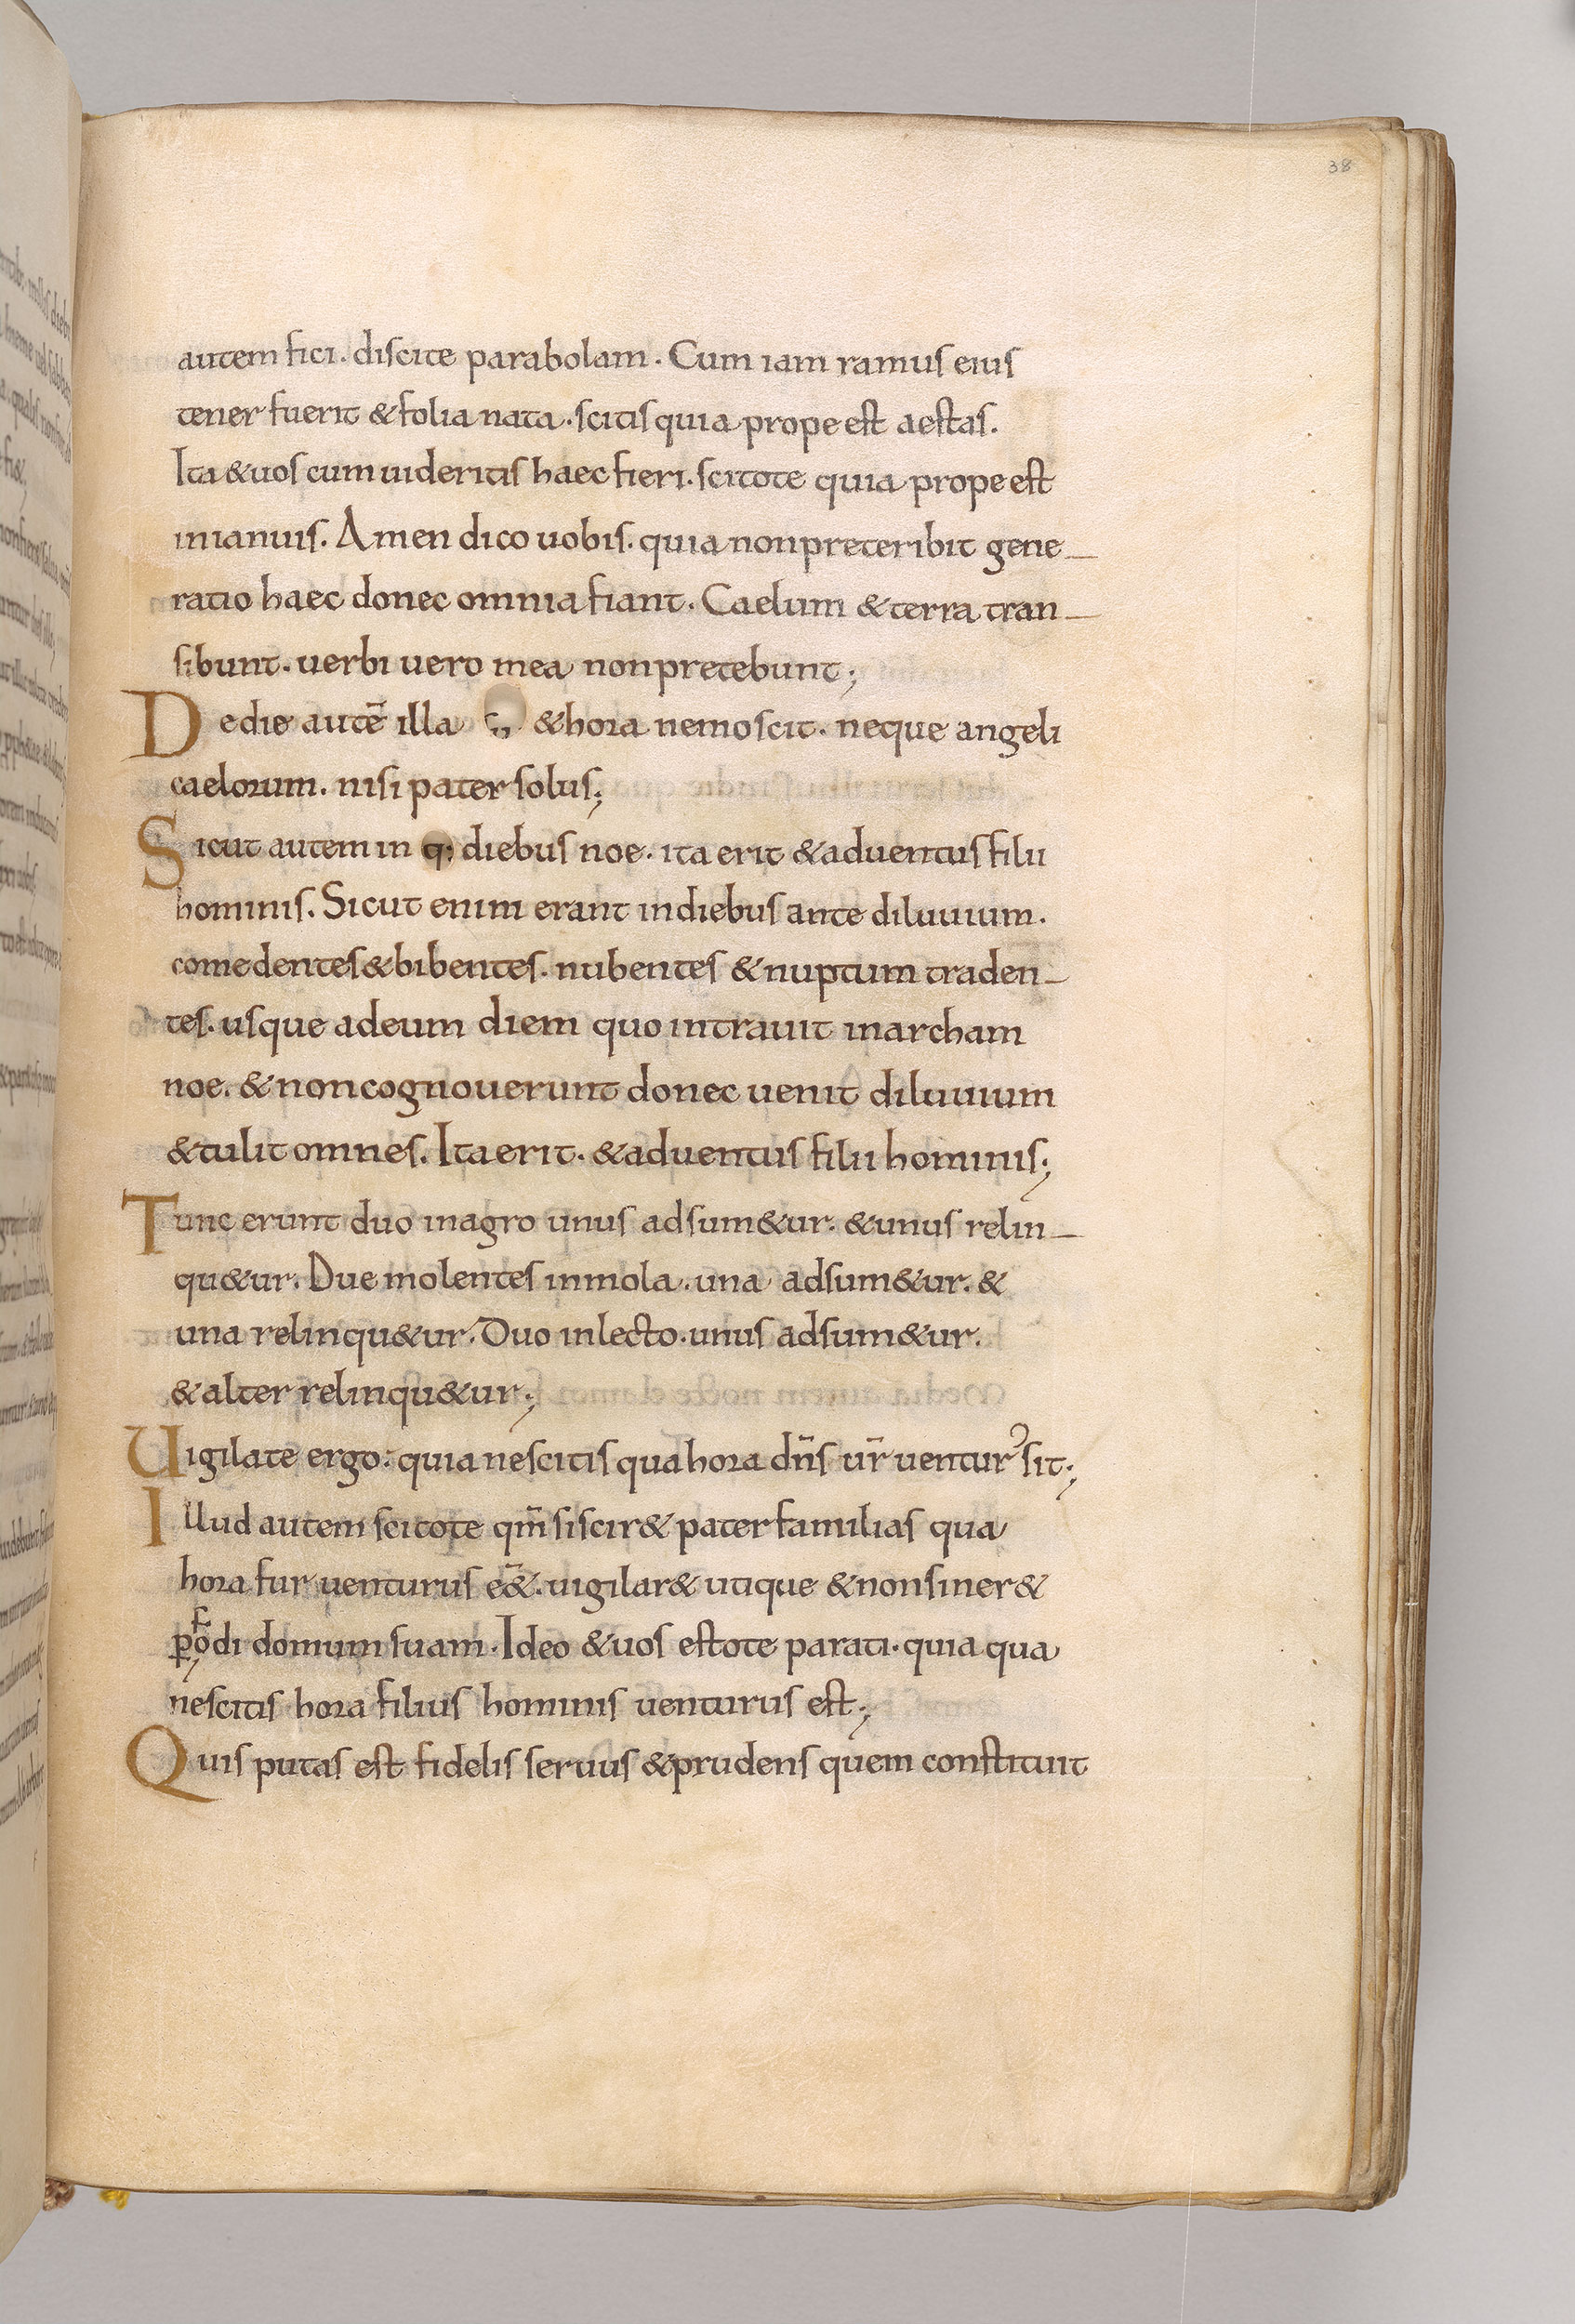 38
autem fici. discite parabolam. Cum iam ramus eius
tener fuerit & folia nata. scitis quia prope est aestas.
Ita & uos cum uideritis haec fieri. scitote quia prope est
in ianuis. Amen dico uobis. quia non preteribit gene-
ratio haec donec omnia fiant. Caelum & terra tran-
sibunt. uerbi uero mea non pretebunt;
De die autē illa & hora nemo scit. neque angeli
caelorum. nisi pater solus;
Sicut autem in diebus noe. ita erit & aduentus filii
hominis. Sicut enim erant in diebus ante diluuium.
comedentes & bibentes. nubentes & nuptum traden-
tes. usque ad eum diem quo intrauit in archam
noe. & non cognouerunt donec uenit diluuium
& tulit omnes. Ita erit. & aduentus filii hominis;
Tunc erunt duo in agro unus adsum&ur. & unus relin-
qu&ur. Due molentes in mola. una adsum&ur. &
una relinqu&ur. Duo in lecto. unus adsum&ur.
& alter relinqu&ur;
Uigilate ergo: quia nescitis qua hora dn̄s ur̄ uentur᾽ sit;
Illud autem scitote qm̄ si scir& pater familias qua
hora fur uenturus ēē&. uigilar& utique & non siner&
ꝑfodi domum suam. Ideo & uos estote parati. quia qua
nescitis hora filius hominis uenturus est;
Quis putas est fidelis seruus & prudens quem constituit